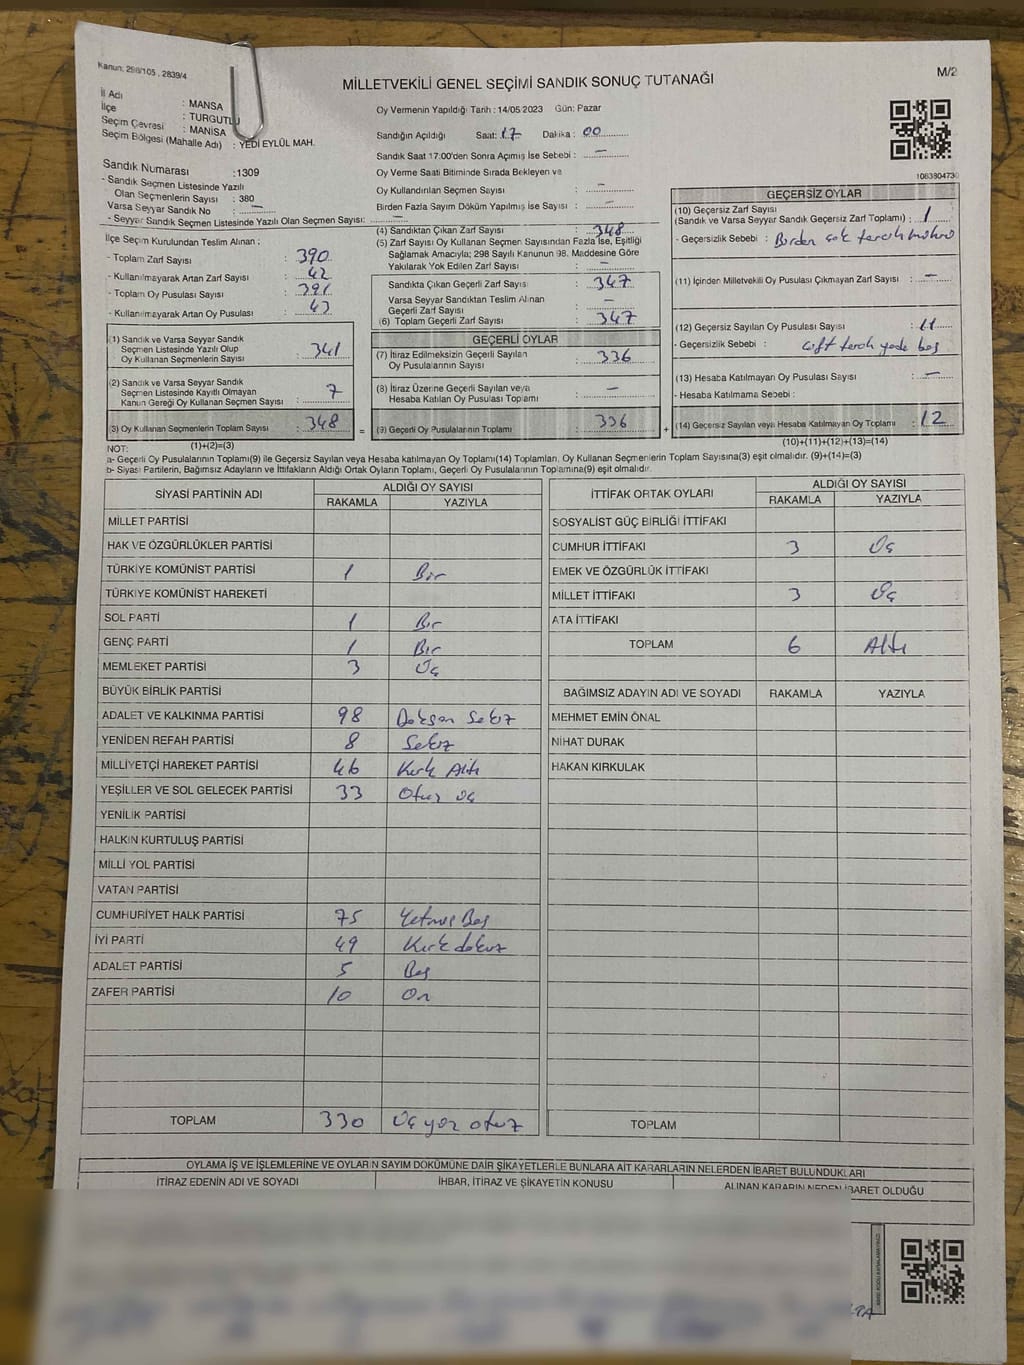 Kanun: 298/105 , 2839/4
M/2
MİLLETVEKİLİ GENEL SEÇİMİ SANDIK SONUÇ TUTANAĞI
İl Adı : MANSA
İlçe : TURGUTLU
Seçim Çevrasi : MANİSA
Seçim Bölgesi (Mahalle Adı) : YEDİ EYLÜL MAH.
Oy Vermenin Yapıldığı Tarih : 14/05 2023 Gün: Pazar
Sandığın Açıldığı Saat: 17 Dakika : 00
Sandık Saat 17:00'den Sonra Açımış İse Sebebi : —
Oy Verme Saati Bitiminde Sırada Bekleyen ve
Oy Kullandırılan Seçmen Sayısı : —
Birden Fazla Sayım Döküm Yapılmış İse Sayısı : —
Sandık Numarası :1309
- Sandık Seçmen Listesinde Yazılı
Olan Seçmenlerin Sayısı : 380
Varsa Seyyar Sandık No : —
- Seyyar Sandık Seçmen Listesinde Yazılı Olan Seçmen Sayısı: —
İlçe Seçim Kurulundan Teslim Alınan ;
- Toplam Zarf Sayısı : 390
- Kullanılmayarak Artan Zarf Sayısı : 42
- Toplam Oy Pusulası Sayısı : 391
- Kullanılmayarak Artan Oy Pusulası : 43
(1) Sandık ve Varsa Seyyar Sandık
Seçmen Listesinde Yazılı Olup
Oy Kullanan Seçmenlerin Sayısı : 341
(2) Sandık ve Varsa Seyyar Sandık
Seçmen Listesinde Kayıtlı Olmayan
Kanun Gereği Oy Kullanan Seçmen Sayısı : 7
(3) Oy Kullanan Seçmenlerin Toplam Sayısı : 348
(1)+(2)=(3)
(4) Sandıktan Çıkan Zarf Sayısı : 348
(5) Zarf Sayısı Oy Kullanan Seçmen Sayısından Fazla İse, Eşitliği
Sağlamak Amacıyla; 298 Sayılı Kanunun 98. Maddesine Göre
Yakılarak Yok Edilen Zarf Sayısı : —
Sandıkta Çıkan Geçerli Zarf Sayısı : 347
Varsa Seyyar Sandıktan Teslim Alınan
Geçerli Zarf Sayısı : —
(6) Toplam Geçerli Zarf Sayısı : 347
GEÇERLİ OYLAR
(7) İtiraz Edilmeksizin Geçerli Sayılan
Oy Pusulalarının Sayısı : 336
(8) İtiraz Üzerine Geçerli Sayılan veya
Hesaba Katılan Oy Pusulası Toplamı : —
= (9) Geçerli Oy Pusulalarının Toplamı : 336 +
1083804730
GEÇERSİZ OYLAR
(10) Geçersiz Zarf Sayısı
(Sandık ve Varsa Seyyar Sandık Geçersiz Zarf Toplamı) : 1
- Geçersizlik Sebebi : Birden çok tercih mührü
(11) İçinden Milletvekili Oy Pusulası Çıkmayan Zarf Sayısı : —
(12) Geçersiz Sayılan Oy Pusulası Sayısı : 11
- Geçersizlik Sebebi : çift tercih yada boş
(13) Hesaba Katılmayan Oy Pusulası Sayısı : —
- Hesaba Katılmama Sebebi :
(14) Geçersiz Sayılan veya Hesaba Katılmayan Oy Toplamı : 12
(10)+(11)+(12)+(13)=(14)
NOT:
a- Geçerli Oy Pusulalarının Toplamı(9) ile Geçersiz Sayılan veya Hesaba katılmayan Oy Toplamı(14) Toplamları, Oy Kullanan Seçmenlerin Toplam Sayısına(3) eşit olmalıdır. (9)+(14)=(3)
b- Siyasi Partilerin, Bağımsız Adayların ve İttifakların Aldığı Ortak Oyların Toplamı, Geçerli Oy Pusulalarının Toplamına(9) eşit olmalıdır.
SİYASİ PARTİNİN ADI ALDIĞI OY SAYISI
RAKAMLA YAZIYLA
MİLLET PARTİSİ
HAK VE ÖZGÜRLÜKLER PARTİSİ
TÜRKİYE KOMÜNİST PARTİSİ 1 Bir
TÜRKİYE KOMÜNİST HAREKETİ
SOL PARTİ 1 Bir
GENÇ PARTİ 1 Bir
MEMLEKET PARTİSİ 3 Üç
BÜYÜK BİRLİK PARTİSİ
ADALET VE KALKINMA PARTİSİ 98 Doksan Sekiz
YENİDEN REFAH PARTİSİ 8 Sekiz
MİLLİYETÇİ HAREKET PARTİSİ 46 Kırk Altı
YEŞİLLER VE SOL GELECEK PARTİSİ 33 Otuz üç
YENİLİK PARTİSİ
HALKIN KURTULUŞ PARTİSİ
MİLLİ YOL PARTİSİ
VATAN PARTİSİ
CUMHURİYET HALK PARTİSİ 75 Yetmiş Beş
İYİ PARTİ 49 Kırk dokuz
ADALET PARTİSİ 5 Beş
ZAFER PARTİSİ 10 On
TOPLAM 330 Üç yüz otuz
İTTİFAK ORTAK OYLARI ALDIĞI OY SAYISI
RAKAMLA YAZIYLA
SOSYALİST GÜÇ BİRLİĞİ İTTİFAKI
CUMHUR İTTİFAKI 3 Üç
EMEK VE ÖZGÜRLÜK İTTİFAKI
MİLLET İTTİFAKI 3 Üç
ATA İTTİFAKI
TOPLAM 6 Altı
BAĞIMSIZ ADAYIN ADI VE SOYADI RAKAMLA YAZIYLA
MEHMET EMİN ÖNAL
NİHAT DURAK
HAKAN KIRKULAK
TOPLAM
OYLAMA İŞ VE İŞLEMLERİNE VE OYLARIN SAYIM DÖKÜMÜNE DAİR ŞİKAYETLERLE BUNLARA AİT KARARLARIN NELERDEN İBARET BULUNDUKLARI
İTİRAZ EDENİN ADI VE SOYADI İHBAR, İTİRAZ VE ŞİKAYETİN KONUSU ALINAN KARARIN NEDEN İBARET OLDUĞU